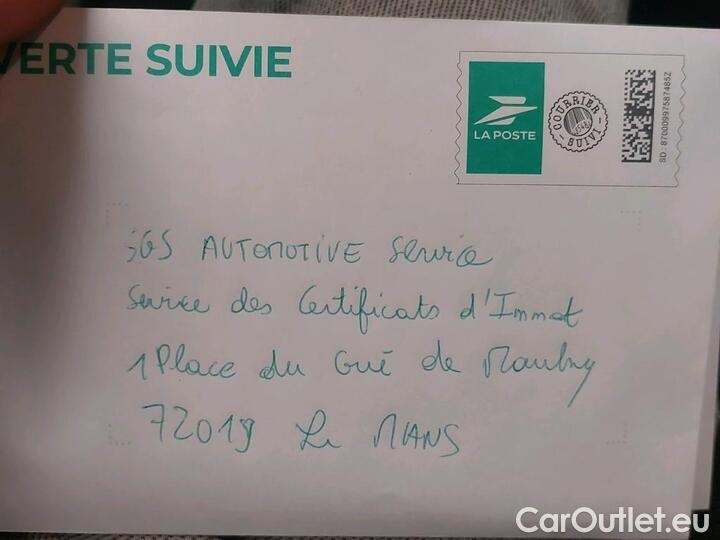 VERTE SUIVIE
LA POSTE
COURRIER SUIVI
SD : 870009975874852
iGS AUTOMOTIVE Service
Service des Certificats d'Immat
1 Place du Gué de Maulny
72019 Le MANS
CarOutlet.eu